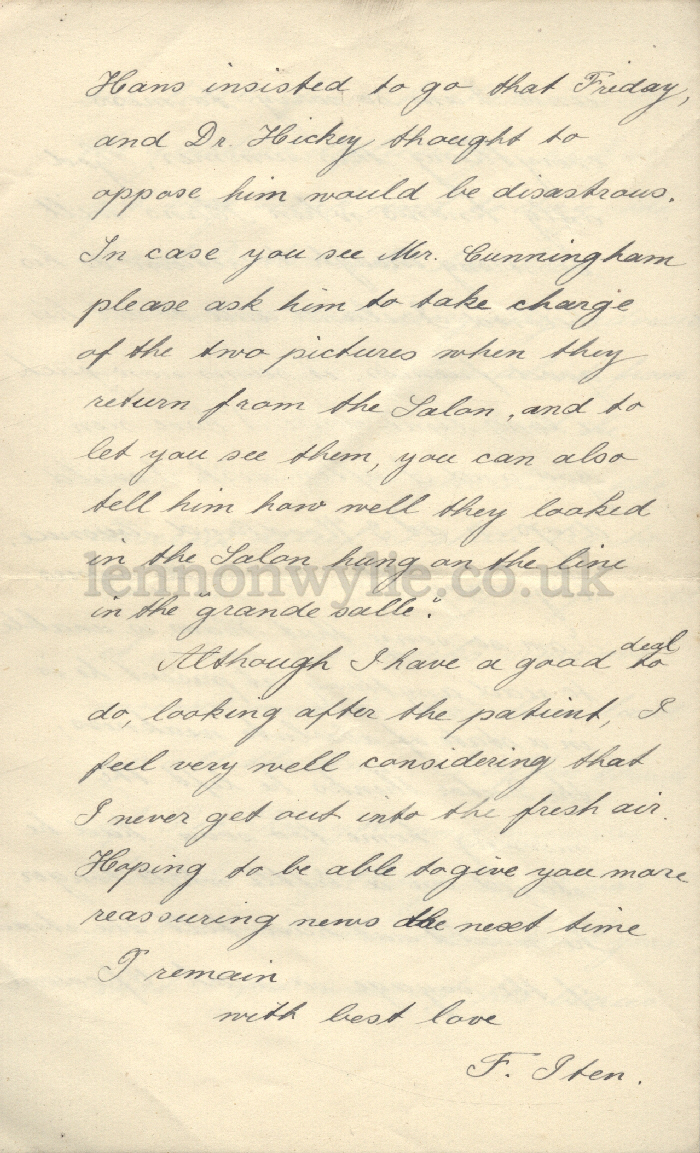 Hans insisted to go that Friday,
and Dr. Hickey thought to
oppose him would be disastrous.
In case you see Mr. Cunningham
please ask him to take charge
of the two pictures when they
return from the Salon, and to
let you see them, you can also
tell him how well they looked
in the Salon hung on the line
lennonwylie.co.uk
in the "grande salle".
Although I have a good deal to
do, looking after the patient, I
feel very well considering that
I never get out into the fresh air.
Hoping to be able to give you more
reassuring news the next time
I remain
with best love
F. Iten.